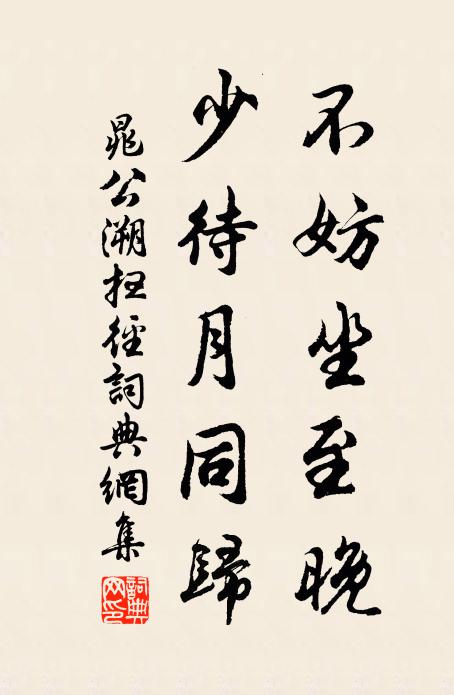 不妨坐至晚
少待月同歸
晁公溯抂徑詞典網集
詞典网印